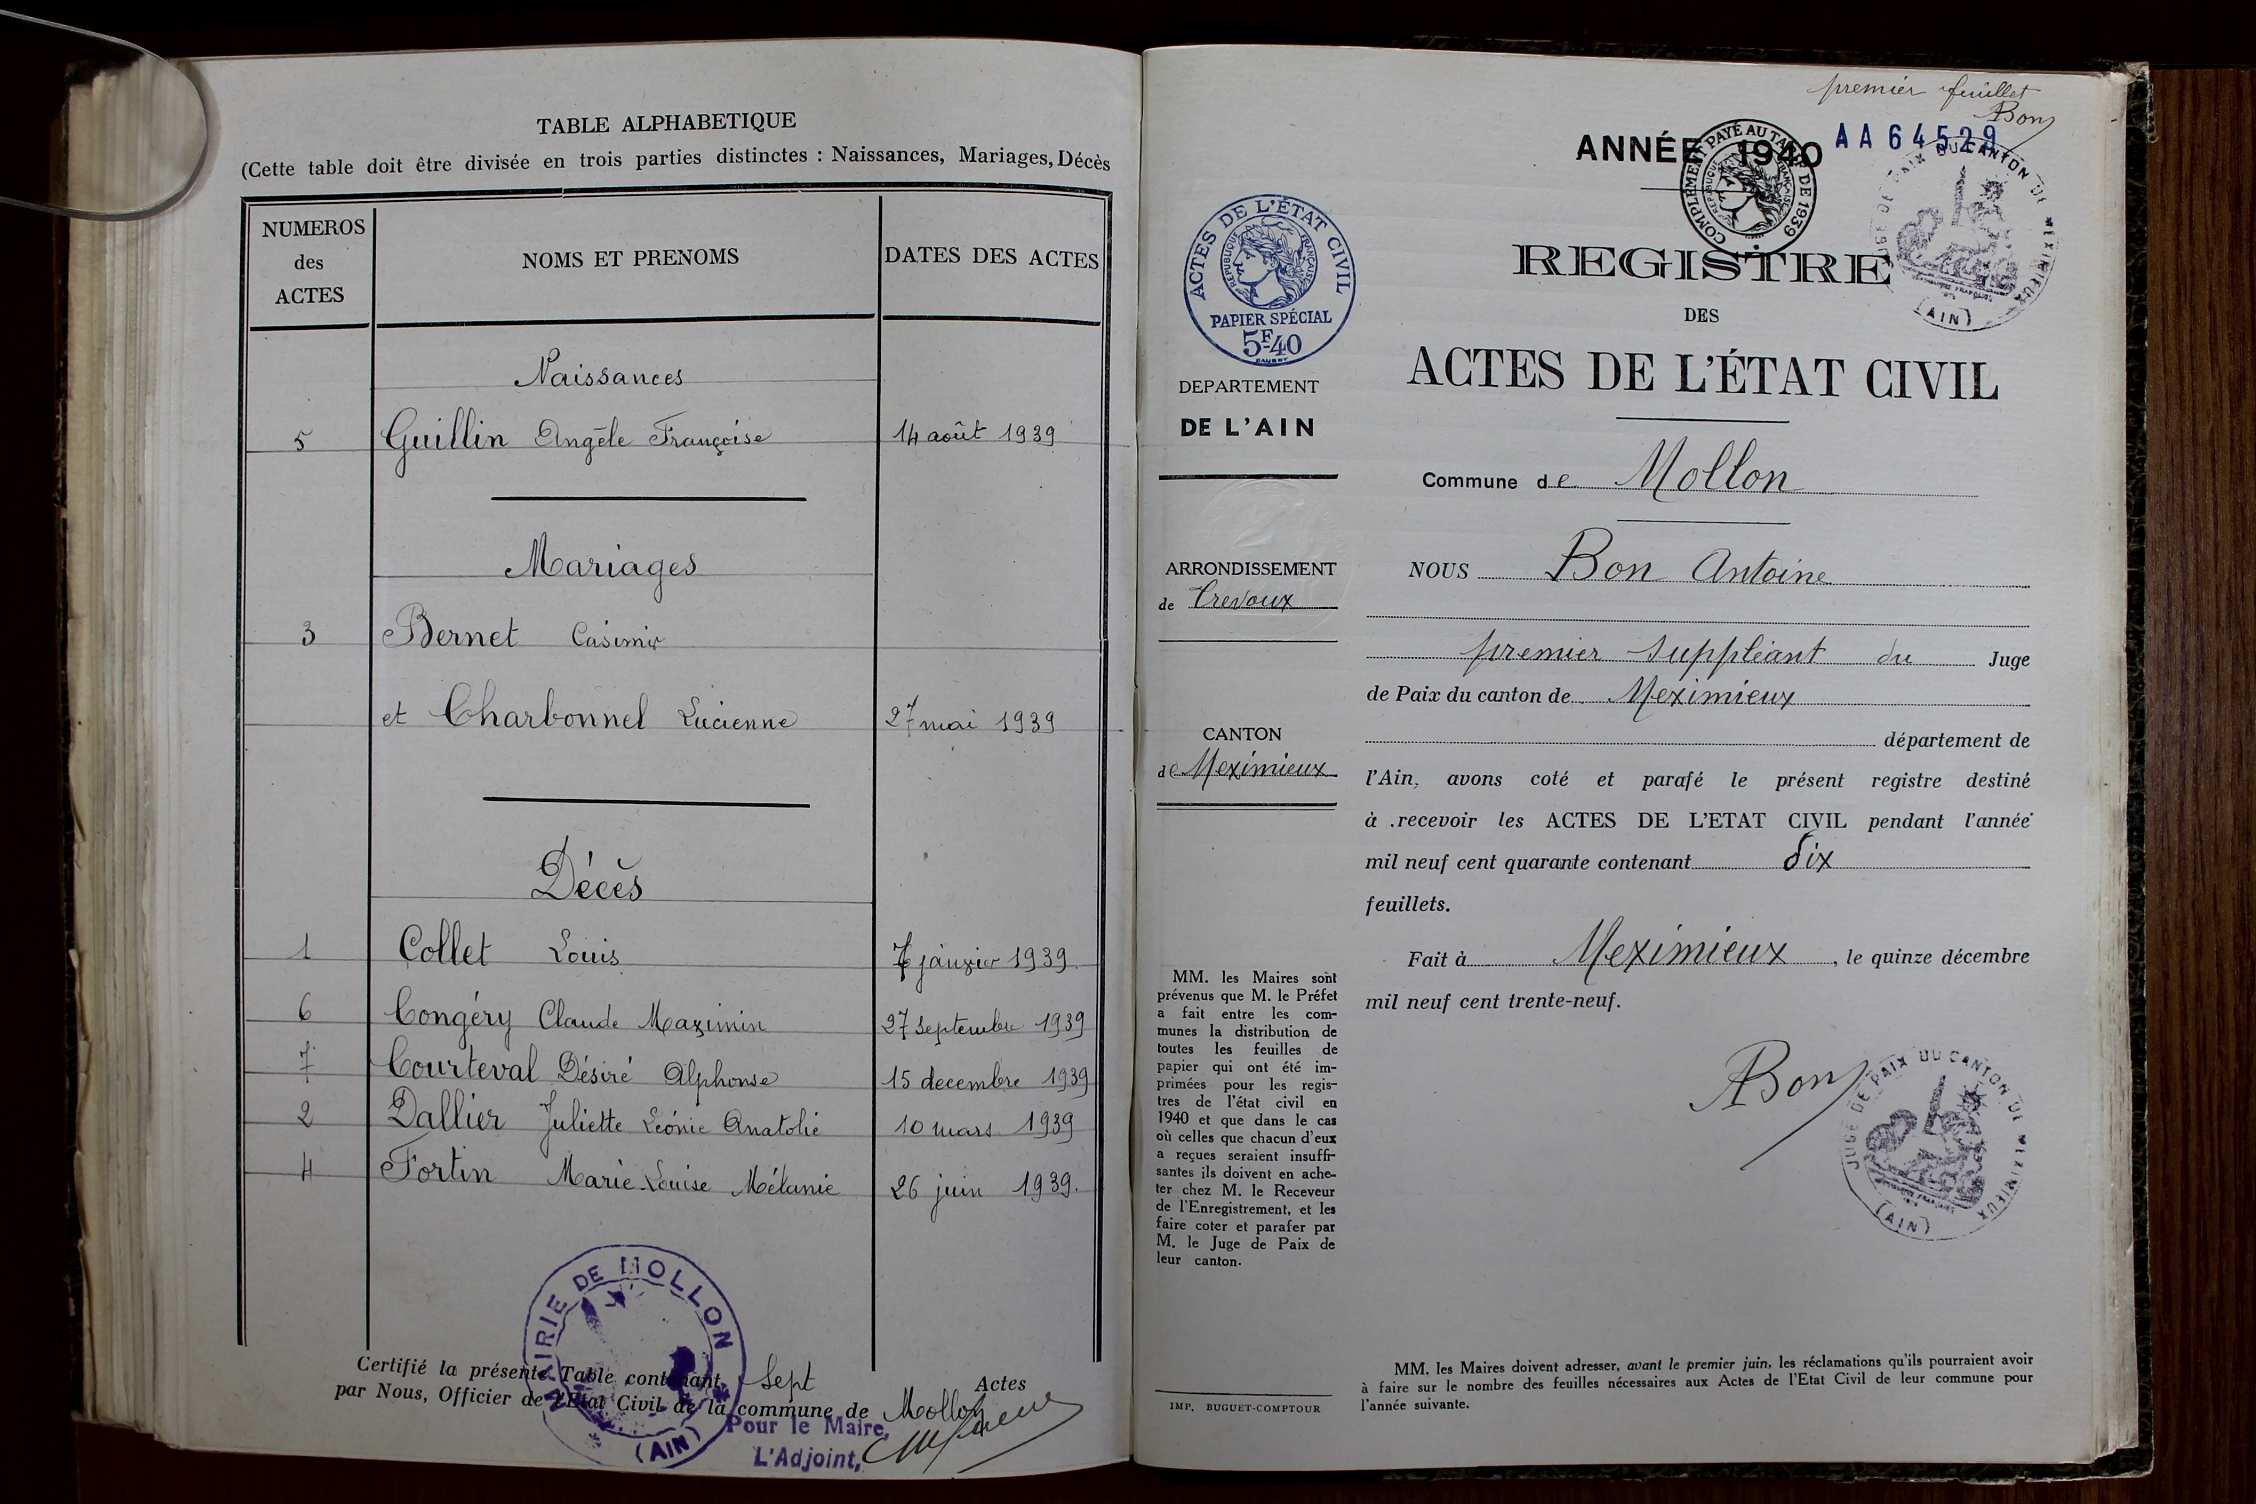 TABLE ALPHABETIQUE
(Cette table doit être divisée en trois parties distinctes : Naissances, Mariages, Décès
NUMEROS des ACTES
NOMS ET PRENOMS
DATES DES ACTES
Naissances
5 Guillin Angèle Françoise 14 août 1939
Mariages
3 Bernet Casimir
et Charbonnel Lucienne 27 mai 1939
Décès
1 Collet Louis 7 janvier 1939
6 Congéry Claude Maximin 27 septembre 1939
7 Courteval Désiré Alphonse 15 decembre 1939
2 Dallier Juliette Léonie Anatolie 10 mars 1939
4 Fortin Marie Louise Mélanie 26 juin 1939.
MAIRIE DE MOLLON
(AIN)
Certifié la présente Table contenant Sept Actes
par Nous, Officier de l'Etat Civil de la commune de Mollon
Pour le Maire,
L'Adjoint,
premier feuillet
Bon
ANNÉE 1940
AA 64529
COMPLÉMENT PAYÉ AU TARIF DE 1939
REPUBLIQUE FRANÇAISE
JUGE DE PAIX DU CANTON DE MEXIMIEUX
(AIN)
ACTES DE L'ÉTAT CIVIL
REPUBLIQUE FRANÇAISE
PAPIER SPÉCIAL
5F-40
REGISTRE
DES
ACTES DE L'ÉTAT CIVIL
DEPARTEMENT
DE L'AIN
ARRONDISSEMENT
de Trevoux
CANTON
de Meximieux
MM. les Maires sont
prévenus que M. le Préfet
a fait entre les com-
munes la distribution de
toutes les feuilles de
papier qui ont été im-
primées pour les regis-
tres de l'état civil en
1940 et que dans le cas
où celles que chacun d'eux
a reçues seraient insuffi-
santes ils doivent en ache-
ter chez M. le Receveur
de l'Enregistrement, et les
faire coter et parafer par
M. le Juge de Paix de
leur canton.
IMP. BUGUET-COMPTOUR
Commune de Mollon
NOUS Bon Antoine
premier suppléant du Juge
de Paix du canton de Meximieux
département de
l'Ain, avons coté et parafé le présent registre destiné
à recevoir les ACTES DE L'ETAT CIVIL pendant l'année
mil neuf cent quarante contenant Six
feuillets.
Fait à Meximieux, le quinze décembre
mil neuf cent trente-neuf.
Bon
JUGE DE PAIX DU CANTON DE MEXIMIEUX
(AIN)
MM. les Maires doivent adresser, avant le premier juin, les réclamations qu'ils pourraient avoir
à faire sur le nombre des feuilles nécessaires aux Actes de l'Etat Civil de leur commune pour
l'année suivante.